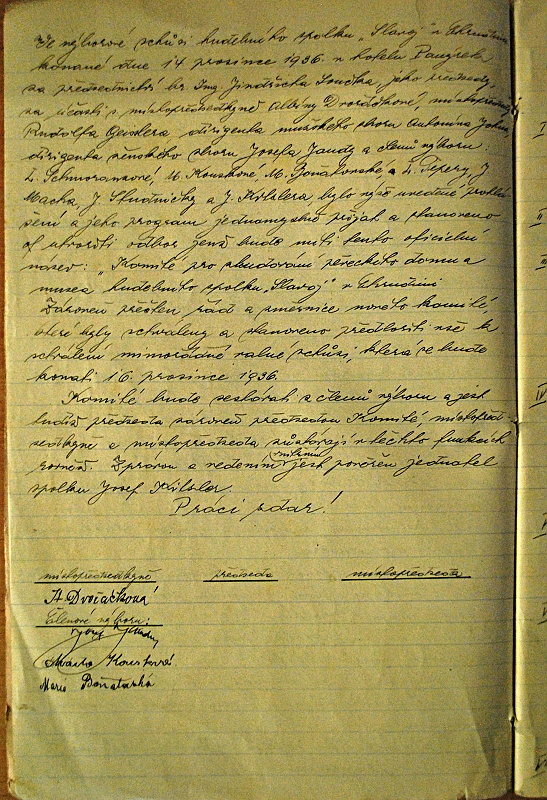 Ve výborové schůzi hudebního spolku „Slavoj" v Chrudimi
konané dne 14 prosince 1936. v hotelu Panýrek
za předsednictví br. Ing. Jindřicha Součka, jeho předsedy,
za účasti s. místopředsedkyně Albiny Dvořáčkové, místopředsedy
Rudolfa Geislera dirigenta mužského sboru Antonína
dirigenta ženského sboru Josefa Jandy a členů výboru:
M. Kouskové M. Boňatovské a L. Pepery, J
Macha, J. Studničky a J. Kitzlera bylo výše uvedené prohlá-
šení a jeho program jednomyslně přijat a stanoveno
utvořiti odbor jenž bude míti tento oficielní
název: „Komité pro zbudování pěveckého domu a
musea hudebního spolku „Slavoj" v Chrudimi
Zároveň přečten řád a směrnice nového komité,
které byly schváleny a stanoveno předložiti vše k
schválení mimořádné valné schůzi, která se bude
konati 16. prosince 1936.
Komité bude sestávati z členů výboru a jest
tudíž předseda zároveň předsedou Komité, místopřed-
sedkyně a místopředseda zůstávají v těchto funkcích
rovněž. Zprávou a vedením jest pověřen jednatel
spolku Josef Kitzler.
Práci zdar!
místopředsedkyně předseda místopředseda
A. Dvořáčková
Členové výboru:
Kousková
Marie Boňatovská